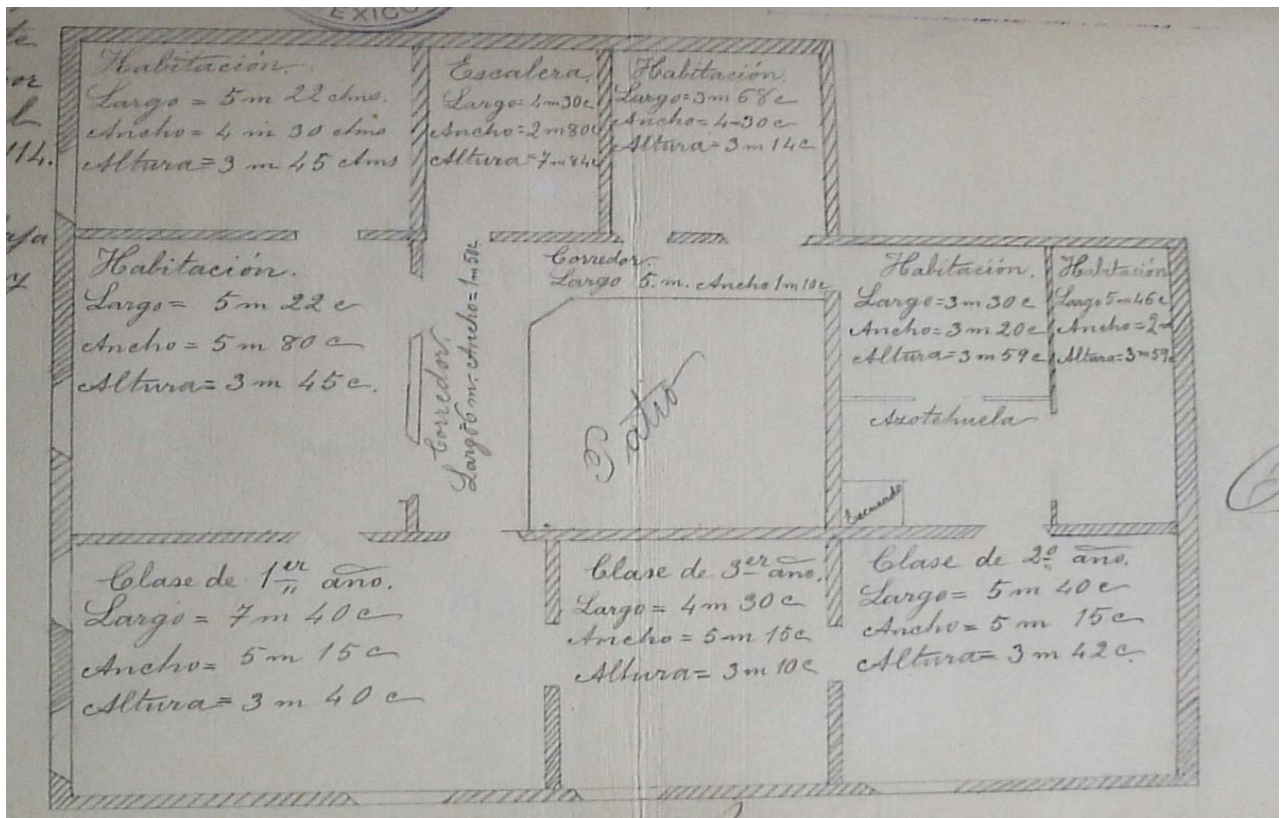 EXICO
te
or
114.
y
Habitación.
Largo = 5 m 22 ctms.
Ancho = 4 m 30 ctms
Altura = 3 m 45 ctms
Escalera.
Largo = 4 m 30 c
Ancho = 2 m 80 c
Altura = 7 m 84 c
Habitación.
Largo = 3 m 68 c
Ancho = 4-30 c
Altura = 3 m 14 c
Habitación.
Largo = 5 m 22 c
Ancho = 5 m 80 c
Altura = 3 m 45 c.
Corredor.
Largo 6 m. Ancho = 1 m 50 c
Corredor.
Largo 5. m. Ancho 1 m 10 c
Patio
Habitación.
Largo = 3 m 30 c
Ancho = 3 m 20 c
Altura = 3 m 59 c
Habitación
Largo 5 m 46 c
Ancho = 2 m
Altura = 3 m 59 c
Azotehuela
Clase de 1er año.
Largo = 7 m 40 c
Ancho = 5 m 15 c
Altura = 3 m 40 c
Clase de 3er año.
Largo = 4 m 30 c
Ancho = 5 m 15 c
Altura = 3 m 10 c
Clase de 2º año.
Largo = 5 m 40 c
Ancho = 5 m 15 c
Altura = 3 m 42 c.